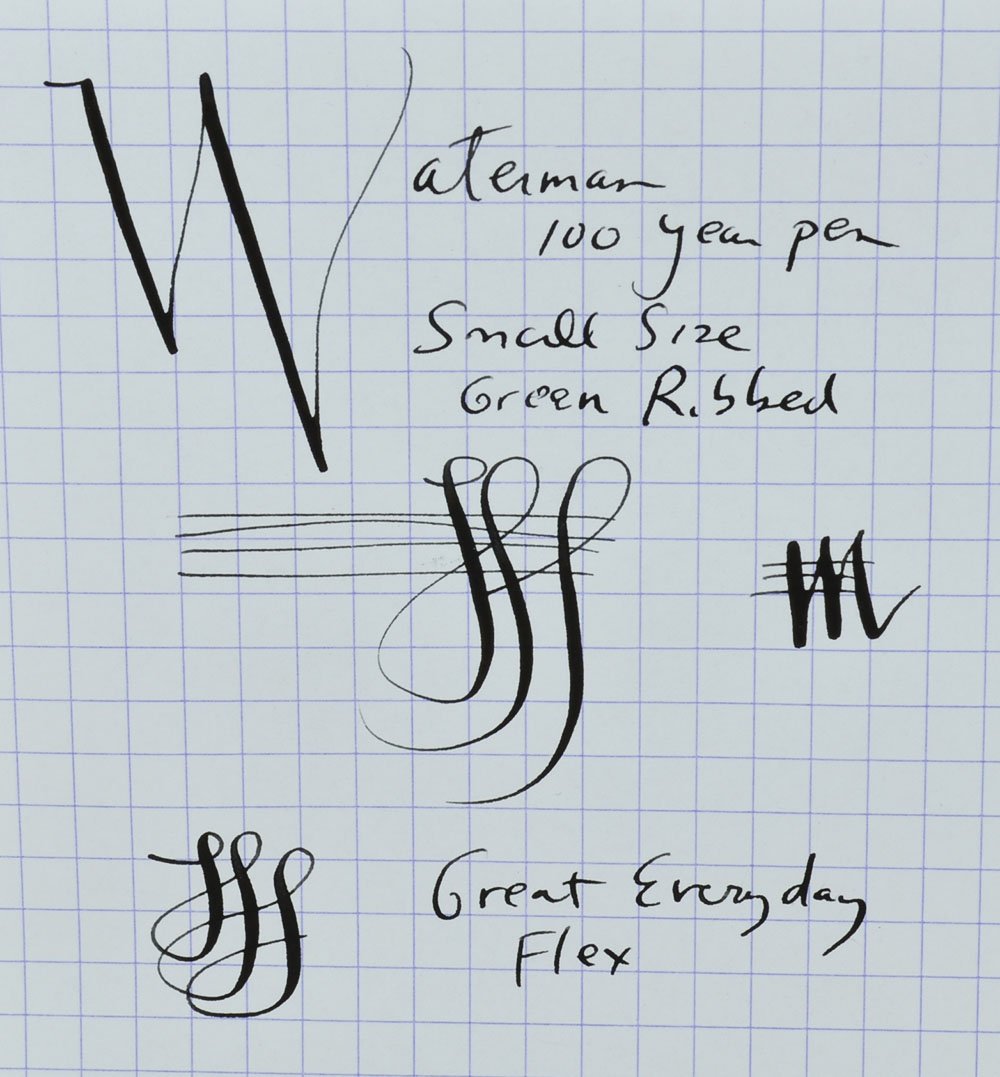 Waterman
100 year pen
Small Size
Green Ribbed
Great Everyday
Flex